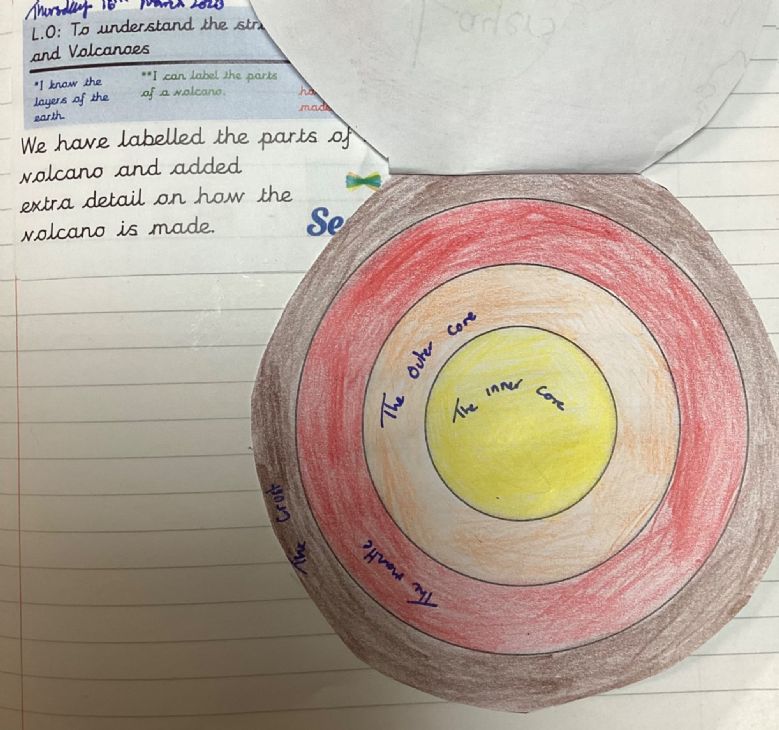 Thursday 16th March 2023
L.O: To understand the
and Volcanoes
*I know the
layers of the
earth
**I can label the parts
of a volcano.
We have labelled the parts of
volcano and added
extra detail on how the
volcano is made.
Se
The outer core
The inner core
The crust
The mantle